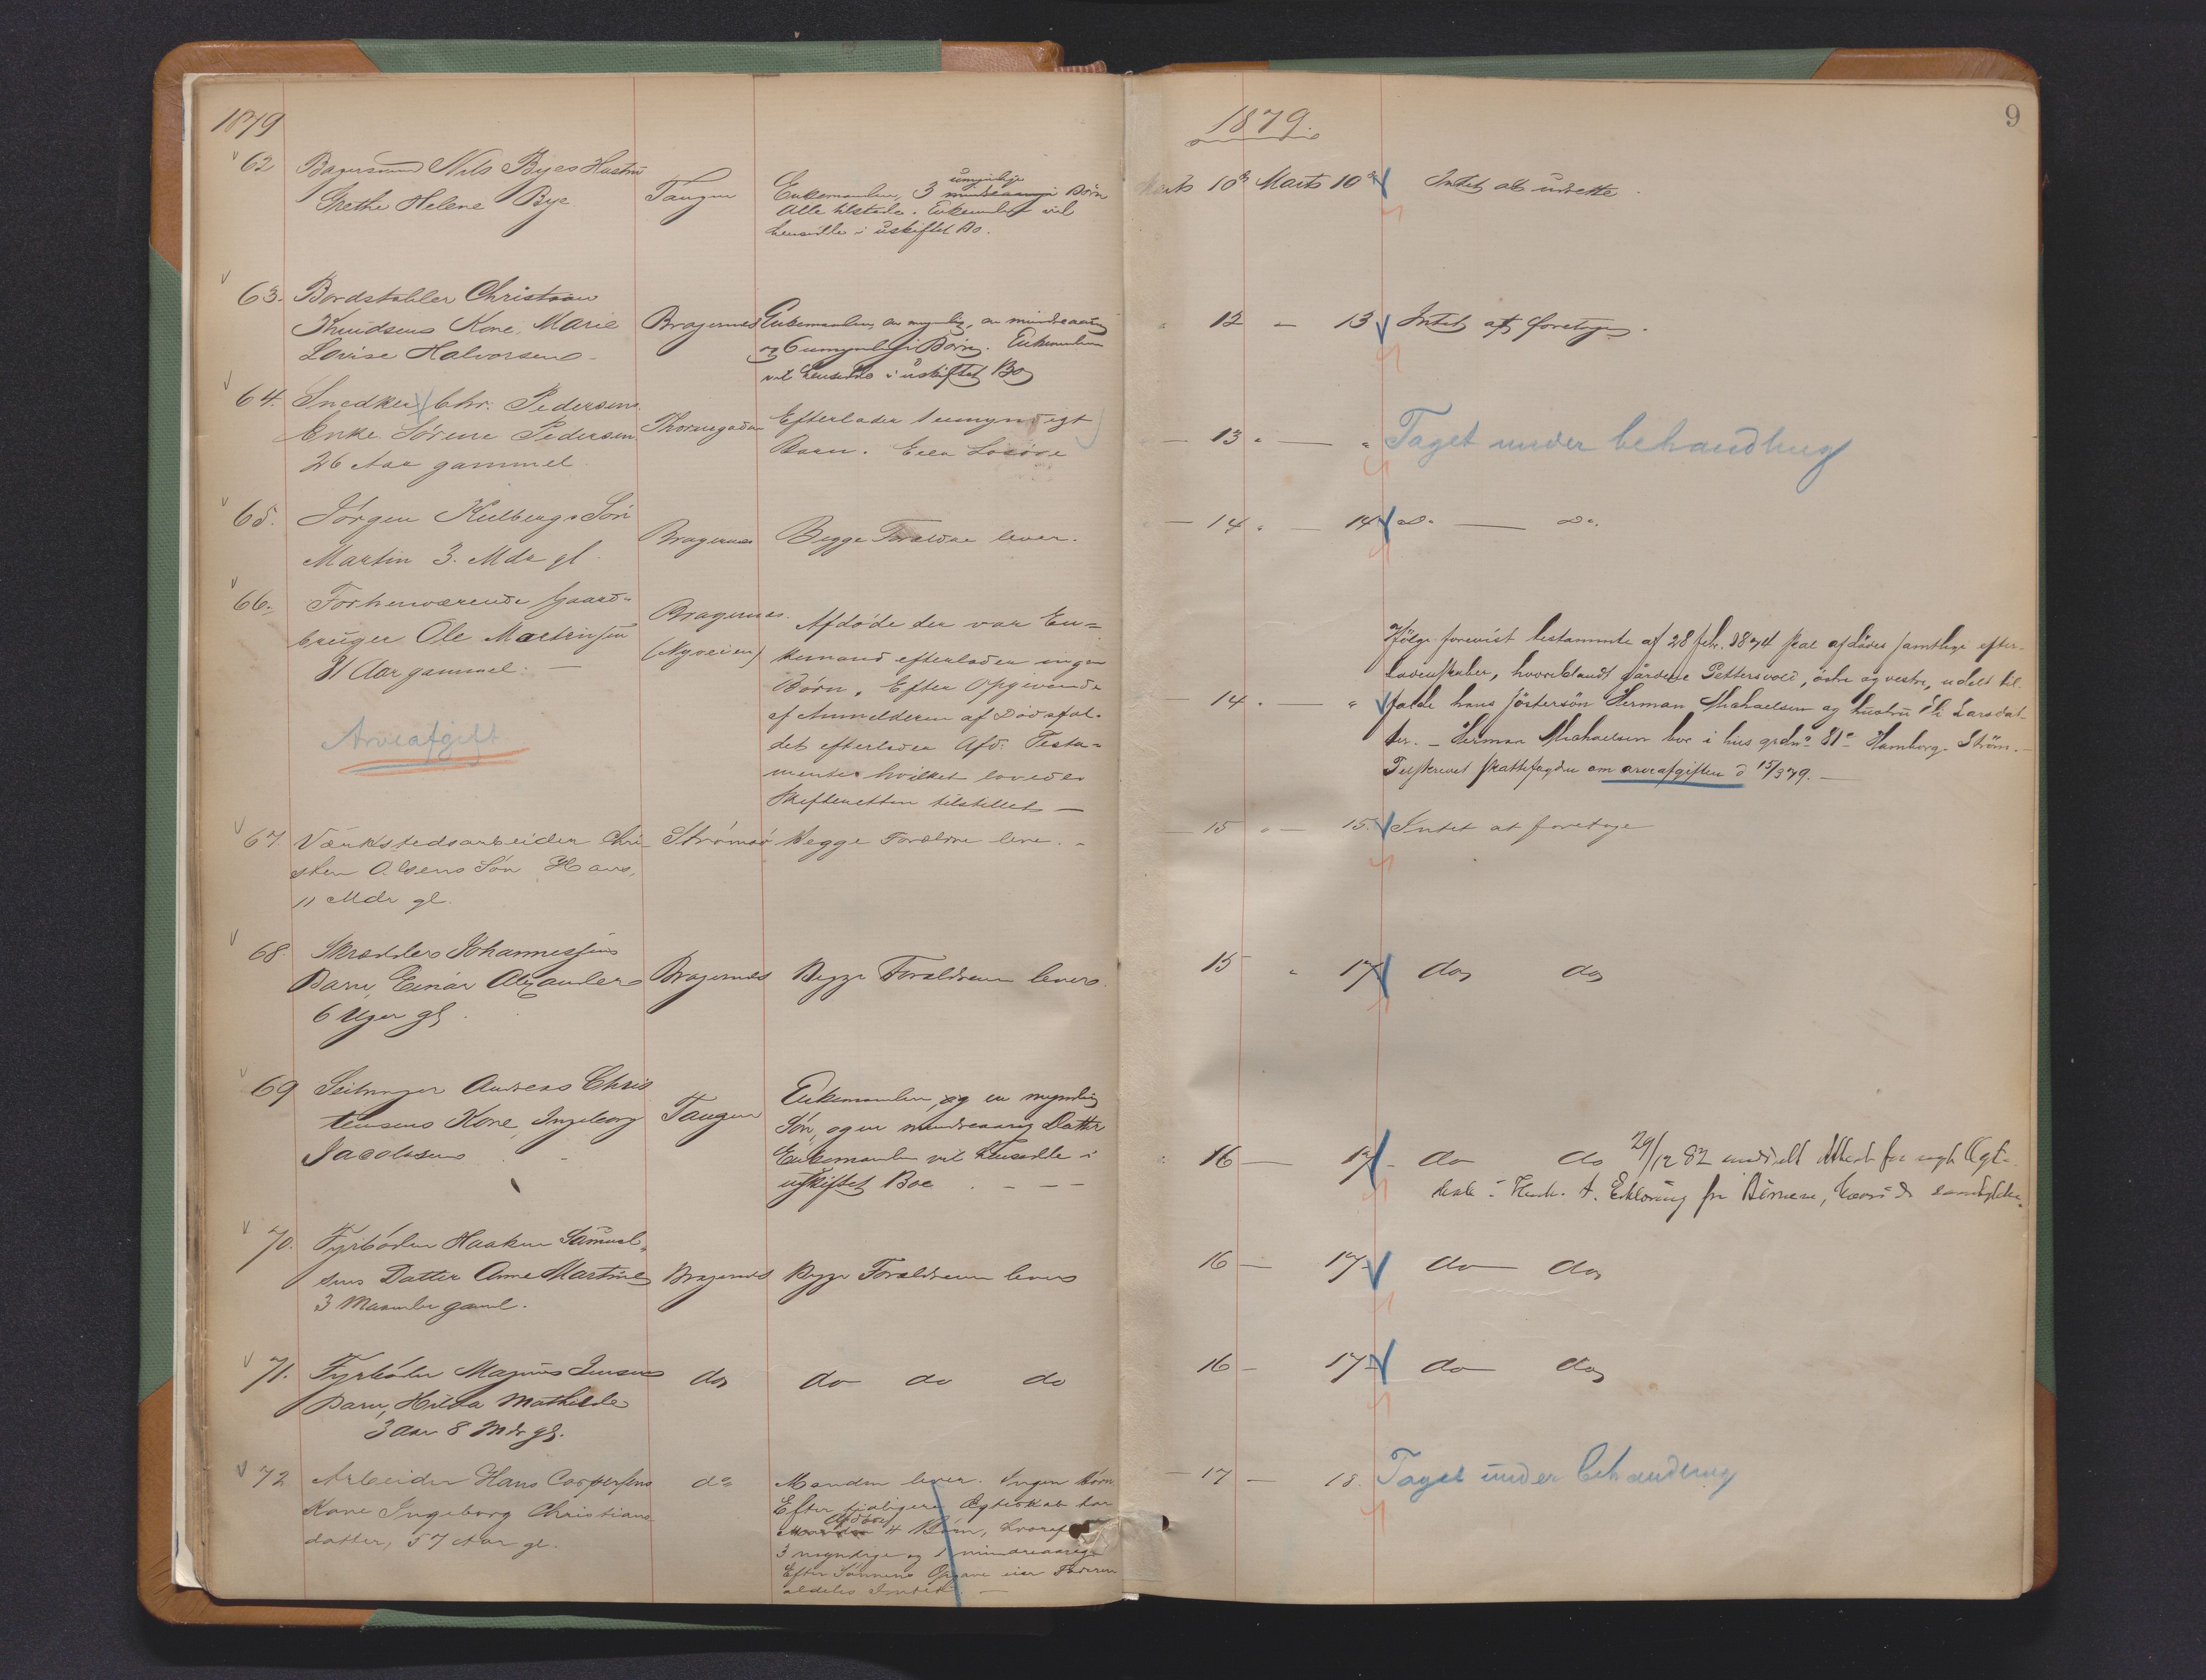 1879
62 Nils Byes Hustru
Grethe Helene Bye
Tangen
umyndige
Enkemanden, 3 mindreaarige Börn
Alle tilstede. Enkemanden vil
hensidde i uskiftet Bo.
63. Bordstabler Christian
Knudsens Kone, Marie
Lovise Halvorsen
Bragernes
Enkemanden, en myndig, en mindreaarig
og 6 umyndige Börn. Enkemanden
vil hensidde i uskiftet Bo
64. Snedker Chr. Pedersens
Enke Sörine Pedersen
26 Aar gammel
Thornegaden
Efterlader 1 umyndigt
Barn. Eier Lösöre
65. Jörgen Kulbergs Sön
Martin 3. Mdr gl.
Bragernes
Begge Foraldre lever.
66. Forhenværende Gaard-
bruger Ole Martinsen
81 Aar gammel. —
Bragernes.
(Nyveien)
Afdöde der var En-
kemand efterlader ingen
Börn. Efter Opgivende
af Anmelderen af Dödsfal-
det efterlader Afd. Testa-
mente hvilket lovedes
Skifteretten tilstillet —
Arveafgift
67. Værkstedsarbeider Chri-
sten Olsens Sön Hans,
11 Mdr gl.
Strömsö
Begge Forældre leve. -
68. Skrædder Johannessens
Barn, Einar Alexander
6 Uger gl.
Bragernes
Begge Forældrene lever.
69 Andreas Chris
tensens Kone, Ingeborg
Jacobsen
Tangen
Enkemanden, og en myndig
Sön, og en mindreaarig Datter
Enkemanden vil hensidde i
uskiftet Boe. - - -
70. Fyrböder Haaken Samuel-
sens Datter Anne Martine
3 Maaneder gaml.
Bragernes
Begge Forældrene lever
71. Fyrböder Magnus Jensens
Barn, Hilda Mathilde
3 Aar 8 Mdr gl.
do
do do do
72 Arbeider Hans Caspersens
Kone Ingeborg Christians-
datter, 57 Aar gl.
do
Manden lever. Ingen Börn
Efter tidligere Ægteskab har
Afdöde
Manden 4 Börn, hvoraf
3 myndige og 1 mindreaarig
Efter Sönnens Opgave eier Faderen
aldeles Intet. —
9
1879.
Marts 10 Marts 10 Intet at udrette.
12 - 13 Intet at foretage.
- 13 " — " Taget under behandling
- 14 " — 14 Do — Do.
- 14 " — "
Ifölge forevist testamente af 28 feb. 1874 skal afdödes samtlige efter-
ladenskaber, hvoriblandt gårdene Pettersvold, östre og vestre, udelt til-
falde hans söstersön Herman Michaelsen og hustru Larsdat-
ter. - Herman Michaelsen bor i hus grdno 81 Hamborg. Ström.-
Tilskrevet skattefogden om arveafgiften d 15/3 79. —
- 15 " - 15. Intet at foretage
15 " 17 do do
16 — 17 - do do 29/12 82 meddelt Attest for nyt Ægte-
skab. Erklæring fra Börnene,
16 — 17 - do do
16 - 17 - do do
- 17 — 18. Taget under behandling